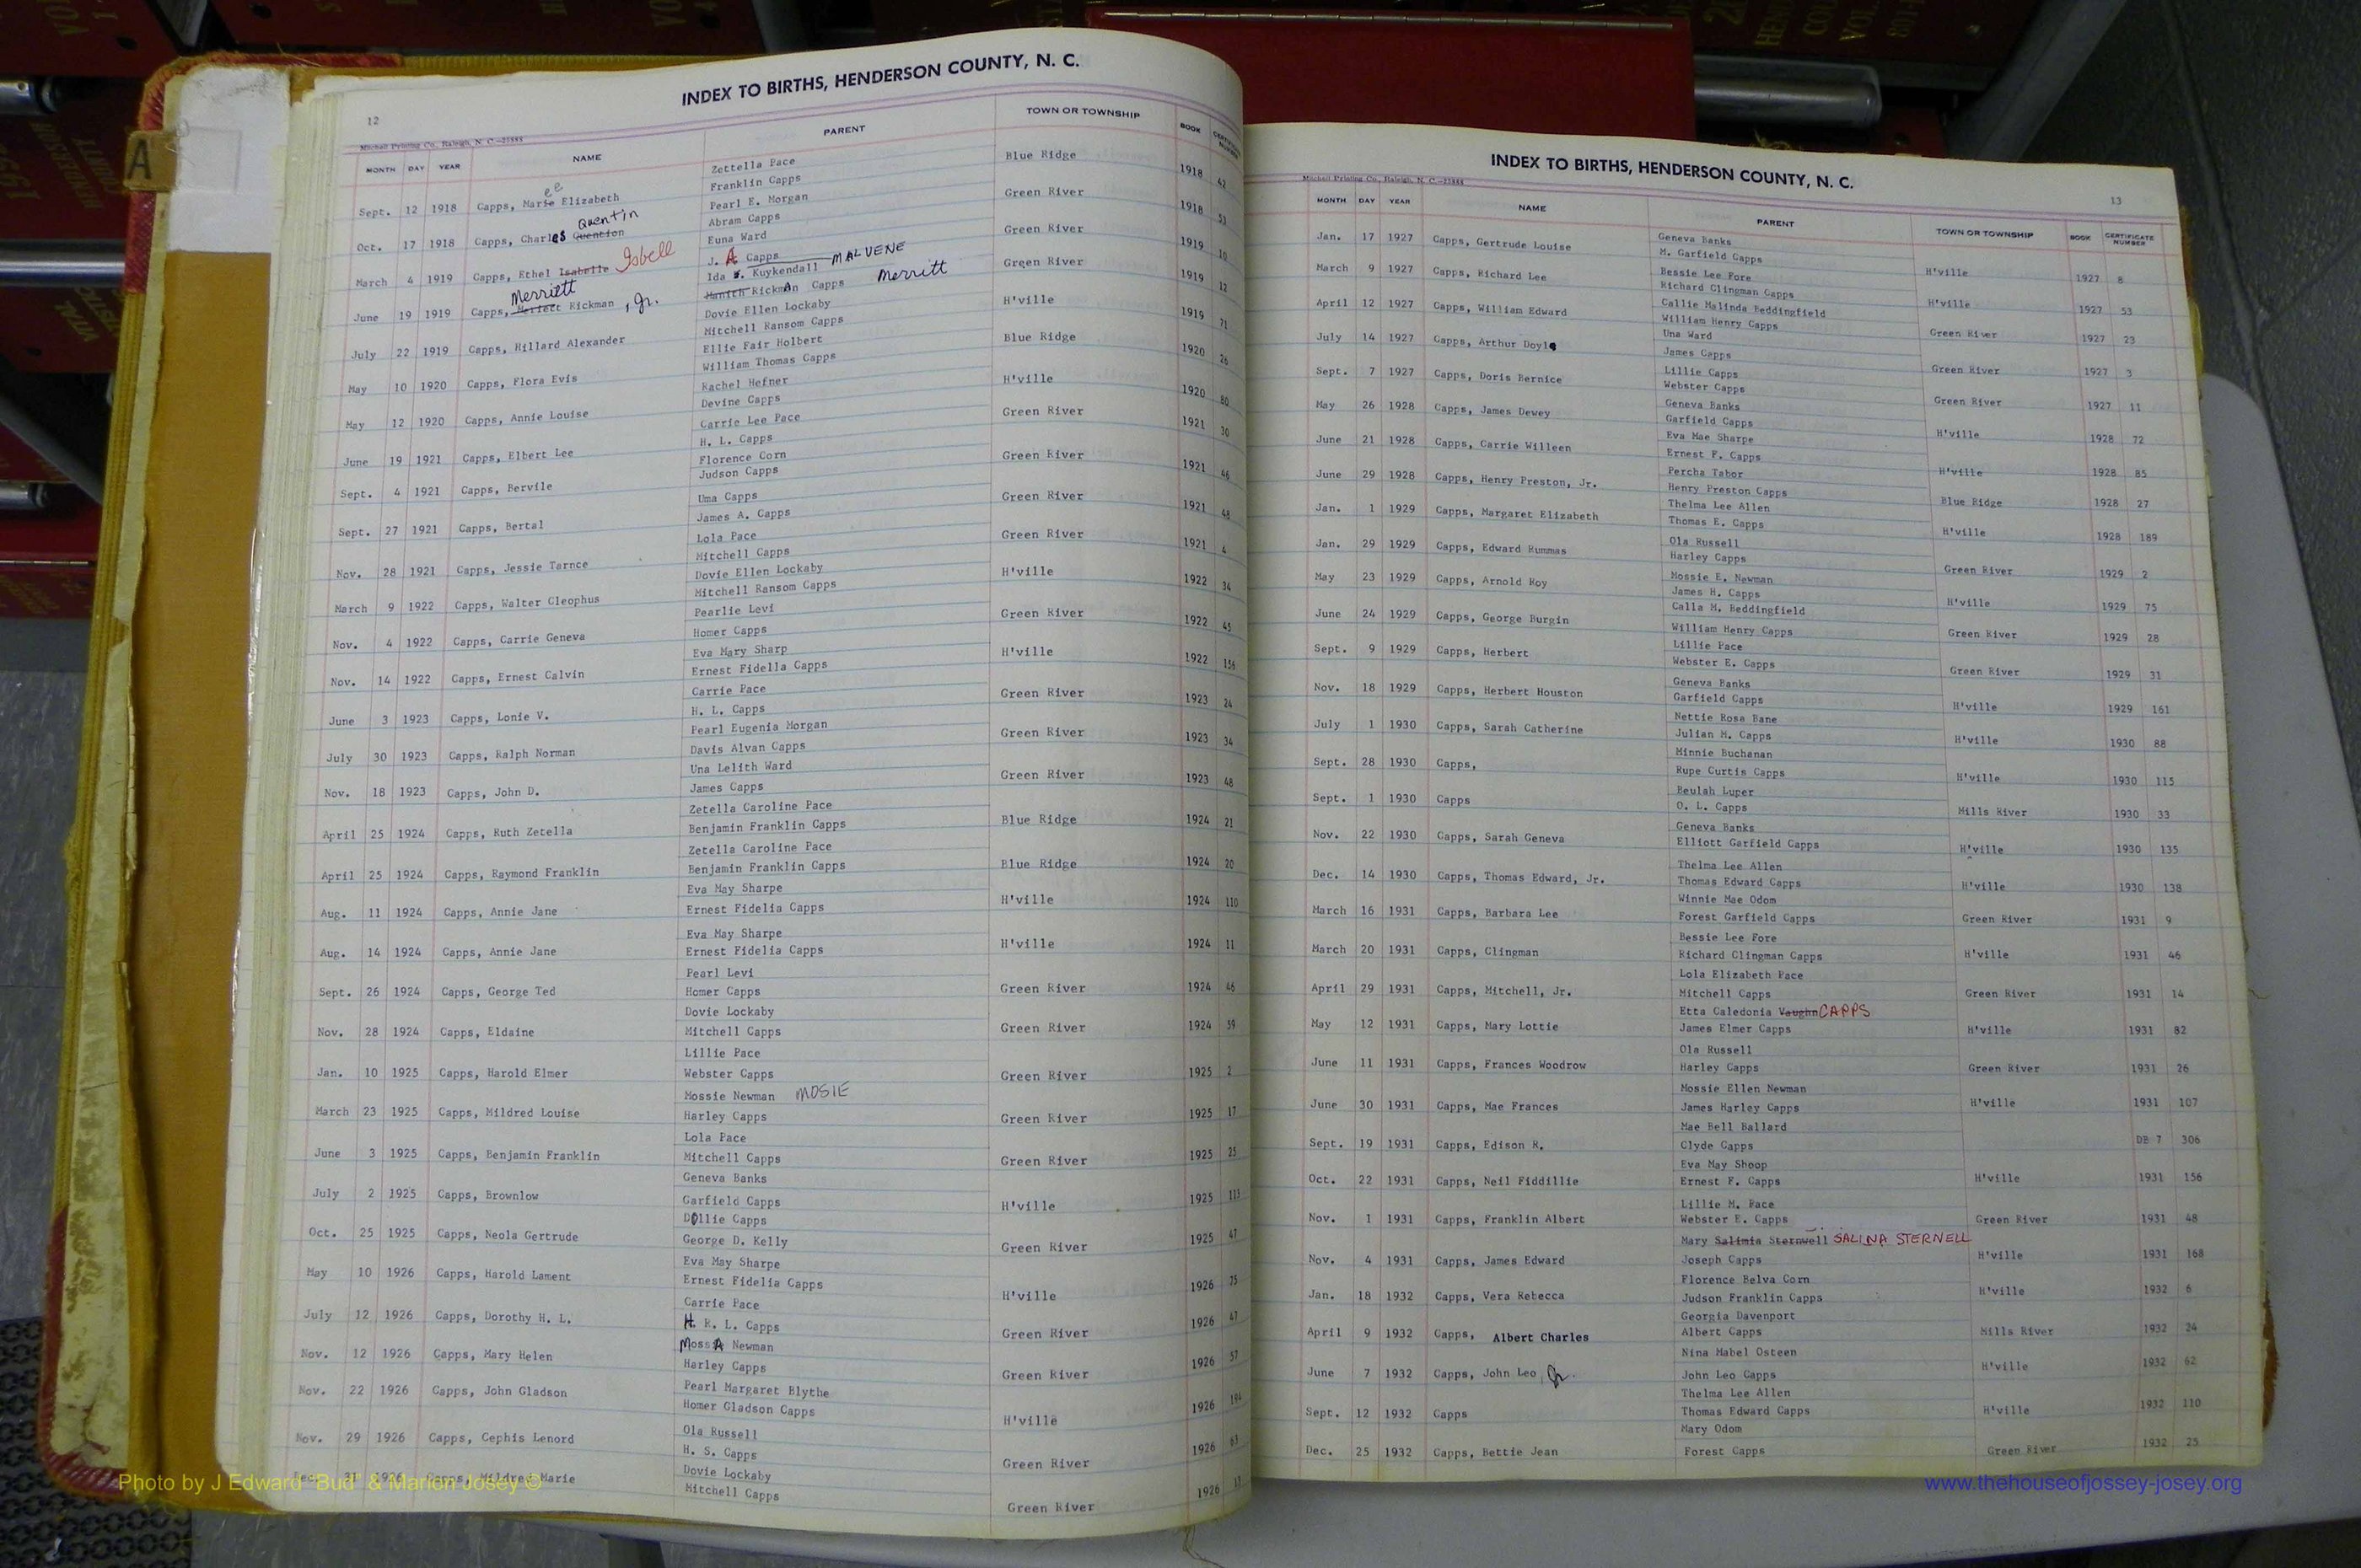 INDEX TO BIRTHS, HENDERSON COUNTY, N. C.
12
Mitchell Printing Co., Raleigh, N. C.
MONTH DAY YEAR NAME PARENT TOWN OR TOWNSHIP BOOK CERTIFICATE NUMBER
Zettella Pace Blue Ridge
Sept. 12 1918 Capps, Marie ee Elizabeth Franklin Capps 1918 42
Pearl E. Morgan Green River
Quentin
Oct. 17 1918 Capps, Charles Quention Abram Capps 1918 53
Euna Ward Green River
March 4 1919 Capps, Ethel Isabelle Isbell J. A Capps 1919 10
Ida Kuykendall MALVENE Green River
Merriett
June 19 1919 Capps, Rickman , Jr. RickmAn Capps Merritt 1919 12
Dovie Ellen Lockaby H'ville
July 22 1919 Capps, Hillard Alexander Mitchell Ransom Capps 1919 71
Ellie Fair Holbert Blue Ridge
May 10 1920 Capps, Flora Evis William Thomas Capps 1920 26
Rachel Hefner H'ville
May 12 1920 Capps, Annie Louise Devine Capps 1920 80
Carrie Lee Pace Green River
June 19 1921 Capps, Elbert Lee H. L. Capps 1921 30
Florence Corn Green River
Sept. 4 1921 Capps, Bervile Judson Capps 1921 46
Uma Capps Green River
Sept. 27 1921 Capps, Bertal James A. Capps 1921 48
Lola Pace Green River
Nov. 28 1921 Capps, Jessie Tarnce Mitchell Capps 1921 4
Dovie Ellen Lockaby H'ville
March 9 1922 Capps, Walter Cleophus Mitchell Ransom Capps 1922 34
Pearlie Levi Green River
Nov. 4 1922 Capps, Carrie Geneva Homer Capps 1922 45
Eva Mary Sharp H'ville
Nov. 14 1922 Capps, Ernest Calvin Ernest Fidella Capps 1922 156
Carrie Pace Green River
June 3 1923 Capps, Lonie V. H. L. Capps 1923 24
Pearl Eugenia Morgan Green River
July 30 1923 Capps, Ralph Norman Davis Alvan Capps 1923 34
Una Lelith Ward Green River
Nov. 18 1923 Capps, John D. James Capps 1923 48
Zetella Caroline Pace Blue Ridge
April 25 1924 Capps, Ruth Zetella Benjamin Franklin Capps 1924 21
Zetella Caroline Pace Blue Ridge
April 25 1924 Capps, Raymond Franklin Benjamin Franklin Capps 1924 20
Eva May Sharpe H'ville
Aug. 11 1924 Capps, Annie Jane Ernest Fidelia Capps 1924 110
Eva May Sharpe H'ville
Aug. 14 1924 Capps, Annie Jane Ernest Fidelia Capps 1924 11
Pearl Levi
Sept. 26 1924 Capps, George Ted Homer Capps Green River 1924 46
Dovie Lockaby
Nov. 28 1924 Capps, Eldaine Mitchell Capps Green River 1924 59
Lillie Pace
Jan. 10 1925 Capps, Harold Elmer Webster Capps Green River 1925 2
Mossie Newman MOSIE
March 23 1925 Capps, Mildred Louise Harley Capps Green River 1925 17
Lola Pace
June 3 1925 Capps, Benjamin Franklin Mitchell Capps Green River 1925 25
Geneva Banks
July 2 1925 Capps, Brownlow Garfield Capps H'ville 1925 113
Dollie Capps
Oct. 25 1925 Capps, Neola Gertrude George D. Kelly Green River 1925 47
Eva May Sharpe
May 10 1926 Capps, Harold Lament Ernest Fidelia Capps H'ville 1926 75
Carrie Pace
July 12 1926 Capps, Dorothy H. L. H. R. L. Capps Green River 1926 47
MossA Newman
Nov. 12 1926 Capps, Mary Helen Harley Capps Green River 1926 57
Pearl Margaret Blythe
Nov. 22 1926 Capps, John Gladson Homer Gladson Capps H'ville 1926 194
Ola Russell
Nov. 29 1926 Capps, Cephis Lenord H. S. Capps Green River 1926 63
Dovie Lockaby
Capps, Mildred Marie Mitchell Capps Green River 1926 13
INDEX TO BIRTHS, HENDERSON COUNTY, N. C.
13
Mitchell Printing Co., Raleigh, N. C.
MONTH DAY YEAR NAME PARENT TOWN OR TOWNSHIP BOOK CERTIFICATE NUMBER
Geneva Banks
Jan. 17 1927 Capps, Gertrude Louise M. Garfield Capps H'ville 1927 8
Bessie Lee Fore
March 9 1927 Capps, Richard Lee Richard Clingman Capps H'ville 1927 53
Callie Malinda Beddingfield
April 12 1927 Capps, William Edward William Henry Capps Green River 1927 23
Una Ward
July 14 1927 Capps, Arthur Doyle James Capps Green River 1927 3
Lillie Capps
Sept. 7 1927 Capps, Doris Bernice Webster Capps Green River 1927 11
Geneva Banks
May 26 1928 Capps, James Dewey Garfield Capps H'ville 1928 72
Eva Mae Sharpe
June 21 1928 Capps, Carrie Willeen Ernest F. Capps H'ville 1928 85
Percha Tabor
June 29 1928 Capps, Henry Preston, Jr. Henry Preston Capps Blue Ridge 1928 27
Thelma Lee Allen
Jan. 1 1929 Capps, Margaret Elizabeth Thomas E. Capps H'ville 1928 189
Ola Russell
Jan. 29 1929 Capps, Edward Rummas Harley Capps Green River 1929 2
Mossie E. Newman
May 23 1929 Capps, Arnold Roy James H. Capps H'ville 1929 75
Calla M. Beddingfield
June 24 1929 Capps, George Burgin William Henry Capps Green River 1929 28
Lillie Pace
Sept. 9 1929 Capps, Herbert Webster E. Capps Green River 1929 31
Geneva Banks
Nov. 18 1929 Capps, Herbert Houston Garfield Capps H'ville 1929 161
Nettie Rosa Bane
July 1 1930 Capps, Sarah Catherine Julian M. Capps H'ville 1930 88
Minnie Buchanan
Sept. 28 1930 Capps, Rupe Curtis Capps H'ville 1930 115
Beulah Luper
Sept. 1 1930 Capps O. L. Capps Mills River 1930 33
Geneva Banks
Nov. 22 1930 Capps, Sarah Geneva Elliott Garfield Capps H'ville 1930 135
Thelma Lee Allen
Dec. 14 1930 Capps, Thomas Edward, Jr. Thomas Edward Capps H'ville 1930 138
Winnie Mae Odom
March 16 1931 Capps, Barbara Lee Forest Garfield Capps Green River 1931 9
Bessie Lee Fore
March 20 1931 Capps, Clingman Richard Clingman Capps H'ville 1931 46
Lola Elizabeth Pace
April 29 1931 Capps, Mitchell, Jr. Mitchell Capps Green River 1931 14
Etta Caledonia Vaughn CAPPS
May 12 1931 Capps, Mary Lottie James Elmer Capps H'ville 1931 82
Ola Russell
June 11 1931 Capps, Frances Woodrow Harley Capps Green River 1931 26
Mossie Ellen Newman
June 30 1931 Capps, Mae Frances James Harley Capps H'ville 1931 107
Mae Bell Ballard
Sept. 19 1931 Capps, Edison R. Clyde Capps DB 7 306
Eva May Shoop
Oct. 22 1931 Capps, Neil Fiddillie Ernest F. Capps H'ville 1931 156
Lillie M. Pace
Nov. 1 1931 Capps, Franklin Albert Webster E. Capps Green River 1931 48
Mary Salimia Sternwell SALINA STERNELL
Nov. 4 1931 Capps, James Edward Joseph Capps H'ville 1931 168
Florence Belva Corn
Jan. 18 1932 Capps, Vera Rebecca Judson Franklin Capps H'ville 1932 6
Georgia Davenport
April 9 1932 Capps, Albert Charles Albert Capps Mills River 1932 24
Nina Mabel Osteen
June 7 1932 Capps, John Leo Jr. John Leo Capps H'ville 1932 62
Thelma Lee Allen
Sept. 12 1932 Capps Thomas Edward Capps H'ville 1932 110
Mary Odom
Dec. 25 1932 Capps, Bettie Jean Forest Capps Green River 1932 25
Photo by J Edward "Bud" & Marion Josey ©
www.thehouseofjossey-josey.org